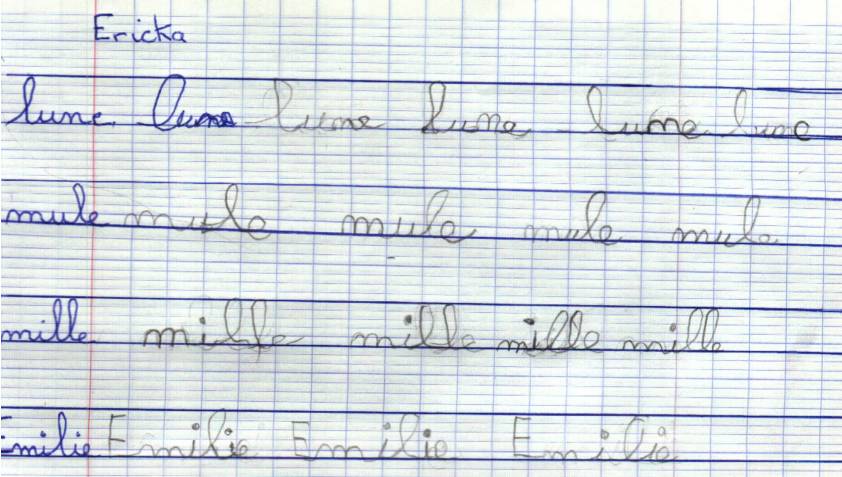 Ericka
lune lune lune lune lune lune
mule mule mule mule mule
mille mille mille mille mille
Emilie Emilie Emilie Emilie